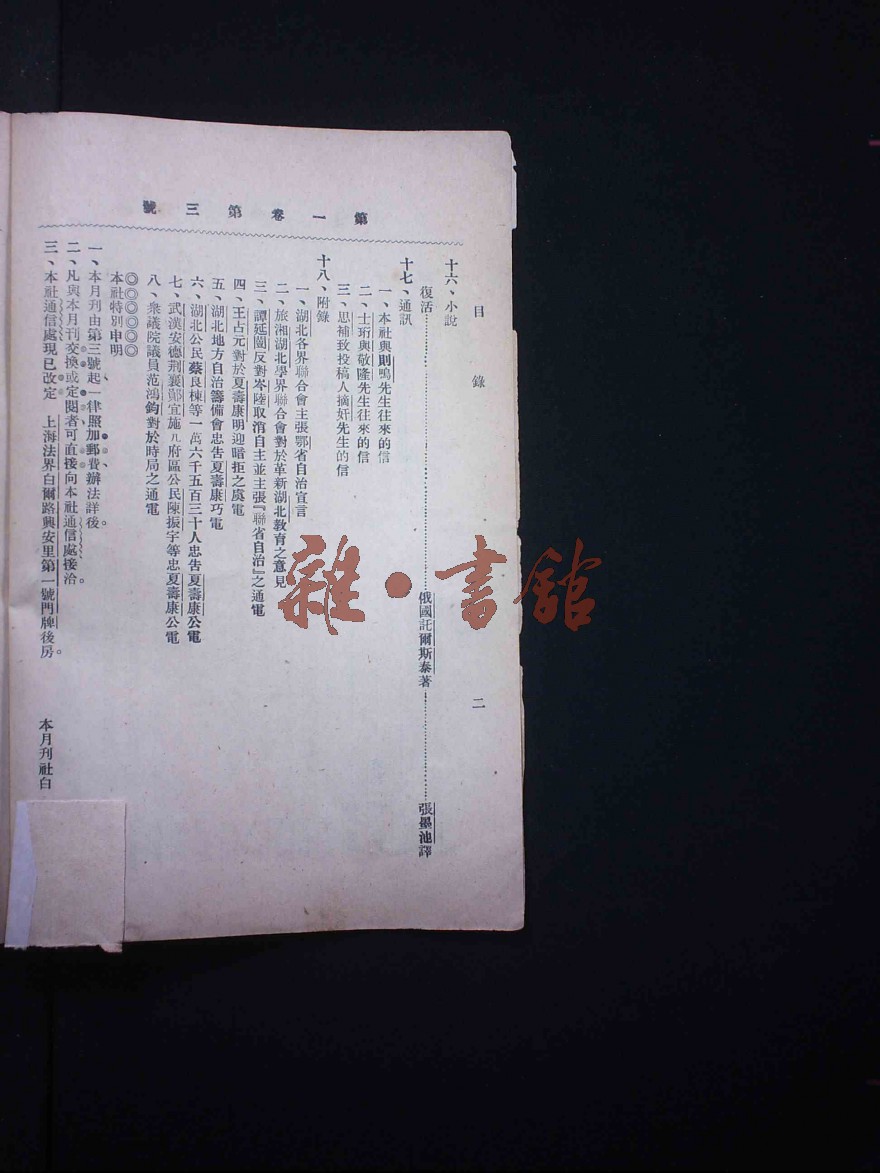 第一卷第三號
目錄 二
十六、小說
復活……俄國託爾斯泰著……張墨池譯
十七、通訊
一、本社與則鳴先生往來的信
二、士珩與敬隆先生往來的信
三、思補致投稿人摘奸先生的信
十八、附錄
一、湖北各界聯合會主張鄂省自治宣言
二、旅湘湖北學界聯合會對於革新湖北教育之意見
三、譚延闓反對岑陸取消自主並主張『聯省自治』之通電
四、王占元對於夏壽康明迎暗拒之虞電
五、湖北地方自治籌備會忠告夏壽康巧電
六、湖北公民蔡良棟等一萬六千五百三十人忠告夏壽康公電
七、武漢安德荆襄鄖宜施八府區公民陳振宇等忠夏壽康公電
八、衆議院議員范鴻鈞對於時局之通電
◎◎◎◎◎◎
本社特別申明
一、本月刊由第三號起一律照加郵費辦法詳後。
二、凡與本月刊交換或定閱者可直接向本社通信處接洽。
三、本社通信處現已改定 上海法界白爾路興安里第一號門牌後房。
本月刊社白
雜·書館